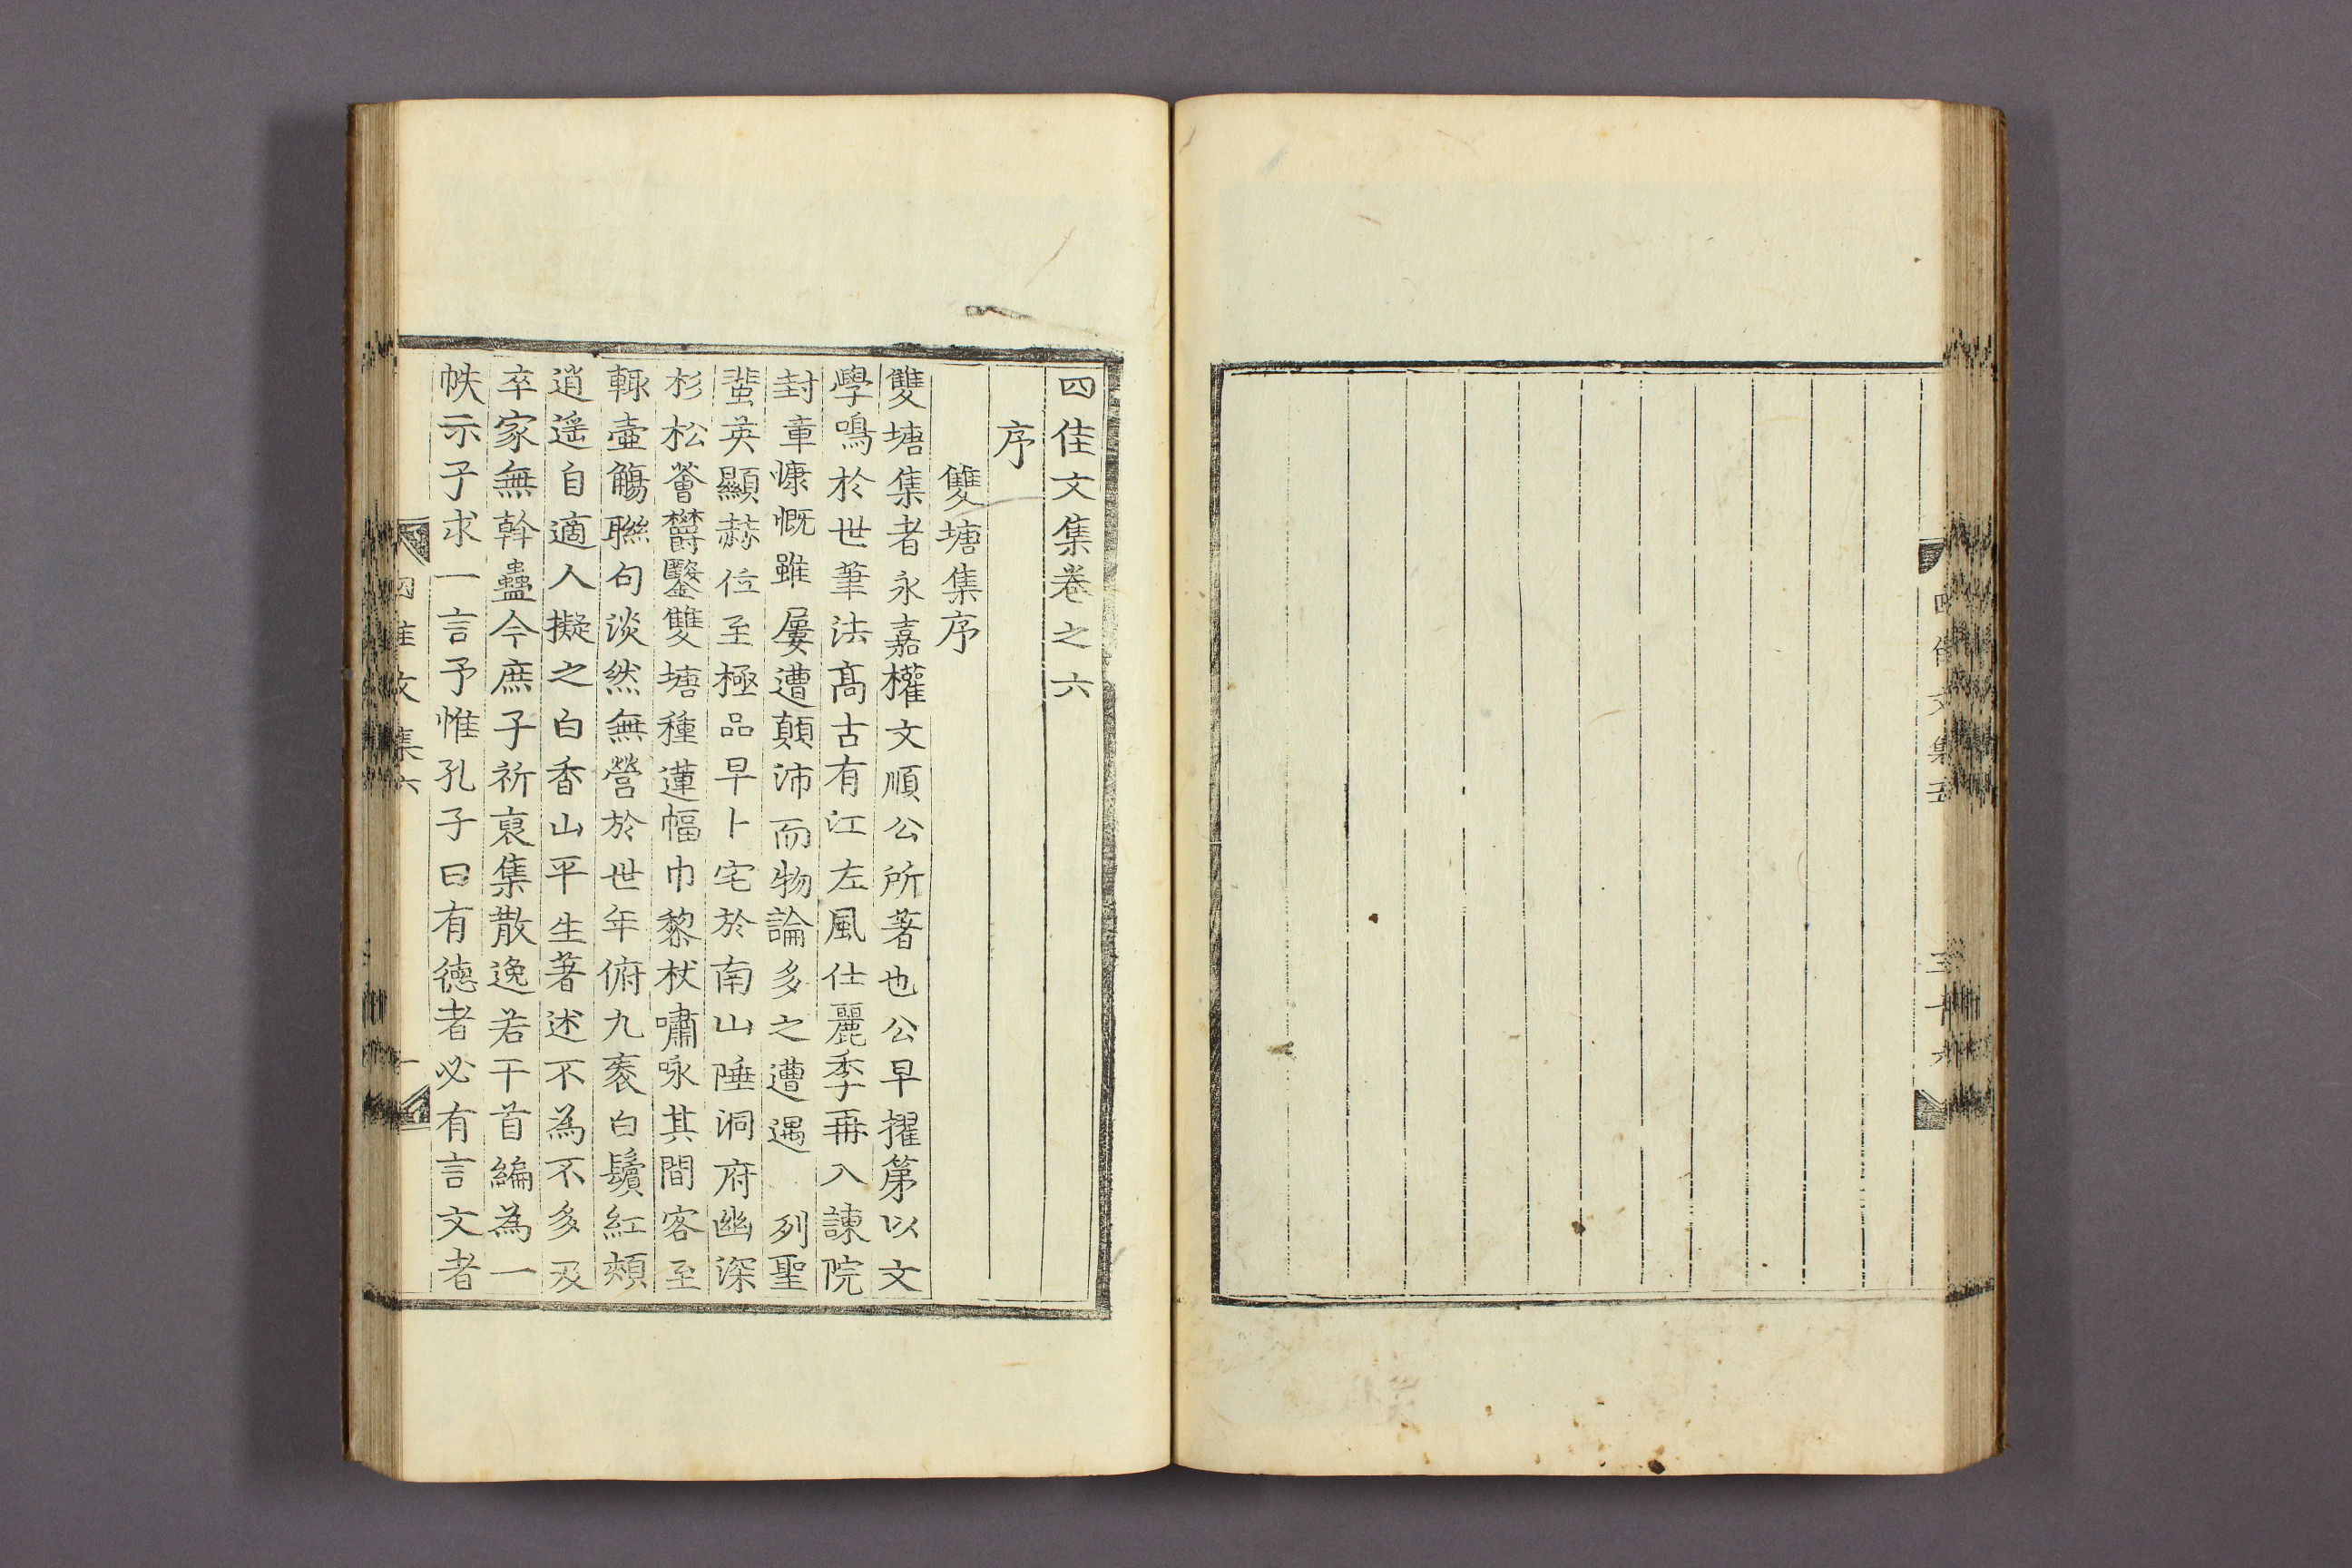 四佳文集卷之六
序
雙塘集序
雙塘集者永嘉權文順公所著也公早擢第以文
學鳴於世筆法高古有江左風仕麗季再入諫院
封章慷慨雖屢遭顛沛而物論多之遭遇 列聖
蜚英顯赫位至極品早卜宅於南山陲洞府幽深
杉松薈欝鑿雙塘種蓮幅巾藜杖嘯咏其間客至
輒壺觴聯句淡然無營於世年俯九袠白鬚紅頰
逍遥自適人擬之白香山平生著述不為不多及
卒家無幹蠱今庶子祈裒集散逸若干首編為一
帙示予求一言予惟孔子曰有德者必有言文者
四佳文集六
一